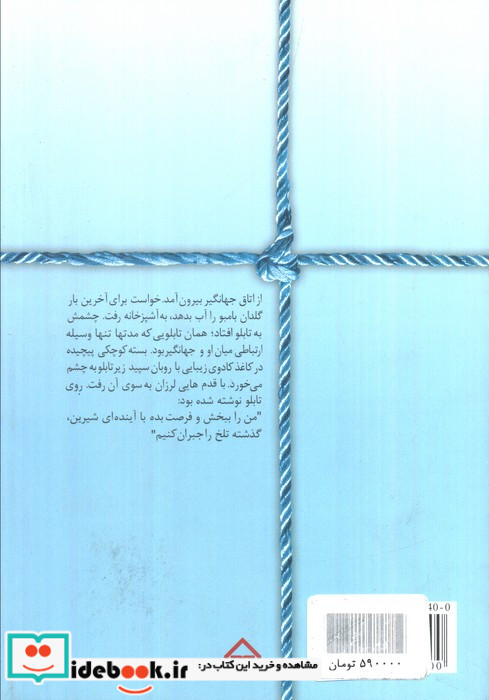 از اتاق جهانگیر بیرون آمد. خواست برای آخرین بار
گلدان بامبو را آب بدهد، به آشپزخانه رفت. چشمش
به تابلو افتاد؛ همان تابلویی که مدتها تنها وسیله
ارتباطی میان او و جهانگیر بود. بسته کوچکی پیچیده
در کاغذ کادوی زیبایی با روبان سپید زیر تابلو به چشم
می‌خورد. با قدم هایی لرزان به سوی آن رفت. روی
تابلو نوشته شده بود:
"من را ببخش و فرصت بده با آینده‌ای شیرین،
گذشته تلخ را جبران کنیم"
40-0
00
۵۹۰۰۰۰ تومان
مشاهده و خرید این کتاب در:
idebook.ir